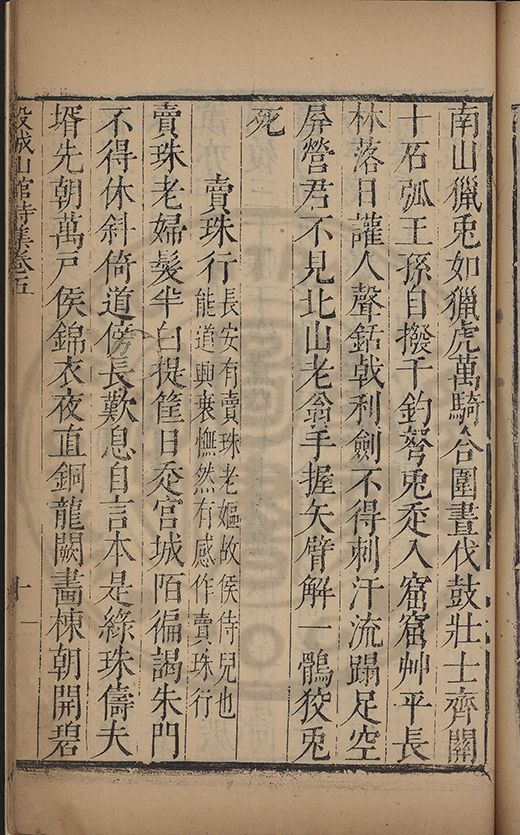 南山獵兎如獵虎萬騎合圍晝伐鼓壯士齊關
十石弧王孫自撥千鈞弩兎走入窟窟艸平長
林落日讙人聲銛戟利劍不得刺汗流蹋足空
屏營君不見北山老翁手握矢臂解一鶻狡兎
死
賣珠行
長安有賣珠老嫗故侯侍兒也
能道興衰憮然有感作賣珠行
賣珠老婦髮半白提筐日走宮城陌徧謁朱門
不得休斜倚道傍長歎息自言本是綠珠儔夫
壻先朝萬戸侯錦衣夜直銅龍闕畫棟朝開碧
穀城山館詩集卷五
十一